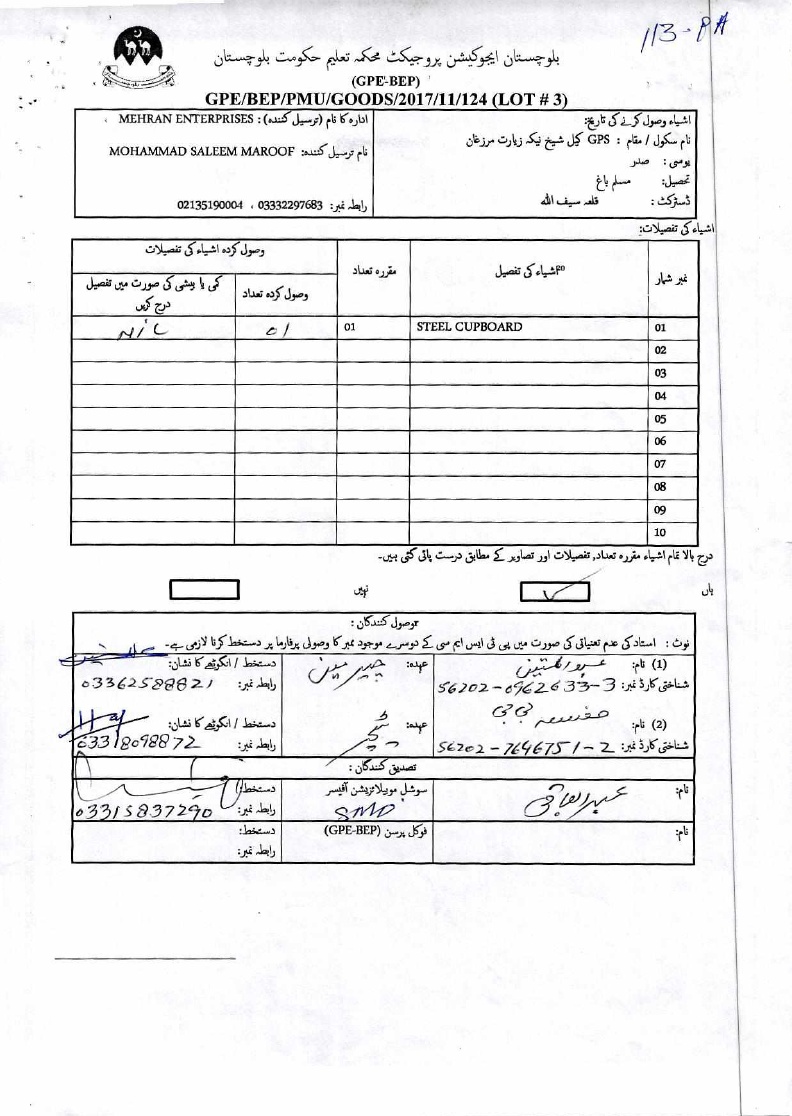 113-PA
بلوچستان ایجوکیشن پروجیکٹ محکمہ تعلیم حکومت بلوچستان
(GPE-BEP)
GPE/BEP/PMU/GOODS/2017/11/124 (LOT # 3)
اشیاء وصول کرنے کی تاریخ:
نام سکول / مقام : GPS کیل شیخ نیکہ زیارت مرزغان
یوسی : صدر
تحصیل: مسلم باغ
ڈسٹرکٹ : قلعہ سیف اللہ
ادارہ کا نام (ترسیل کنندہ) : MEHRAN ENTERPRISES
نام ترسیل کنندہ: MOHAMMAD SALEEM MAROOF
رابطہ نمبر: 03332297683 ، 02135190004
اشیاء کی تفصیلات:
نمبر شمار اشیاء کی تفصیل مقررہ تعداد وصول کردہ اشیاء کی تفصیلات
وصول کردہ تعداد کمی یا بیشی کی صورت میں تفصیل
درج کریں
01 STEEL CUPBOARD 01 01 NIL
02
03
04
05
06
07
08
09
10
درج بالا تمام اشیاء مقررہ تعداد, تفصیلات اور تصاویر کے مطابق درست پائی گئی ہیں۔
ہاں نہیں
وصول کنندگان :
نوٹ : استاد کی عدم تعیناتی کی صورت میں پی ٹی ایس ایم سی کے دوسرے موجود ممبر کا وصولی پرفارما پر دستخط کرنا لازمی ہے۔
(1) نام: عہدہ: چیئرمین دستخط / انگوٹھے کا نشان:
شناختی کارڈ نمبر: 56202-0962633-3 رابطہ نمبر: 03362588821
(2) نام: بی بی عہدہ: ٹیچر دستخط / انگوٹھے کا نشان:
شناختی کارڈ نمبر: 56202-7646751-2 رابطہ نمبر: 03318098872
تصدیق کنندگان :
نام: عبدالباقی سوشل موبیلائزیشن آفیسر دستخط:
SMO رابطہ نمبر: 03315837290
نام: فوکل پرسن (GPE-BEP) دستخط:
رابطہ نمبر: